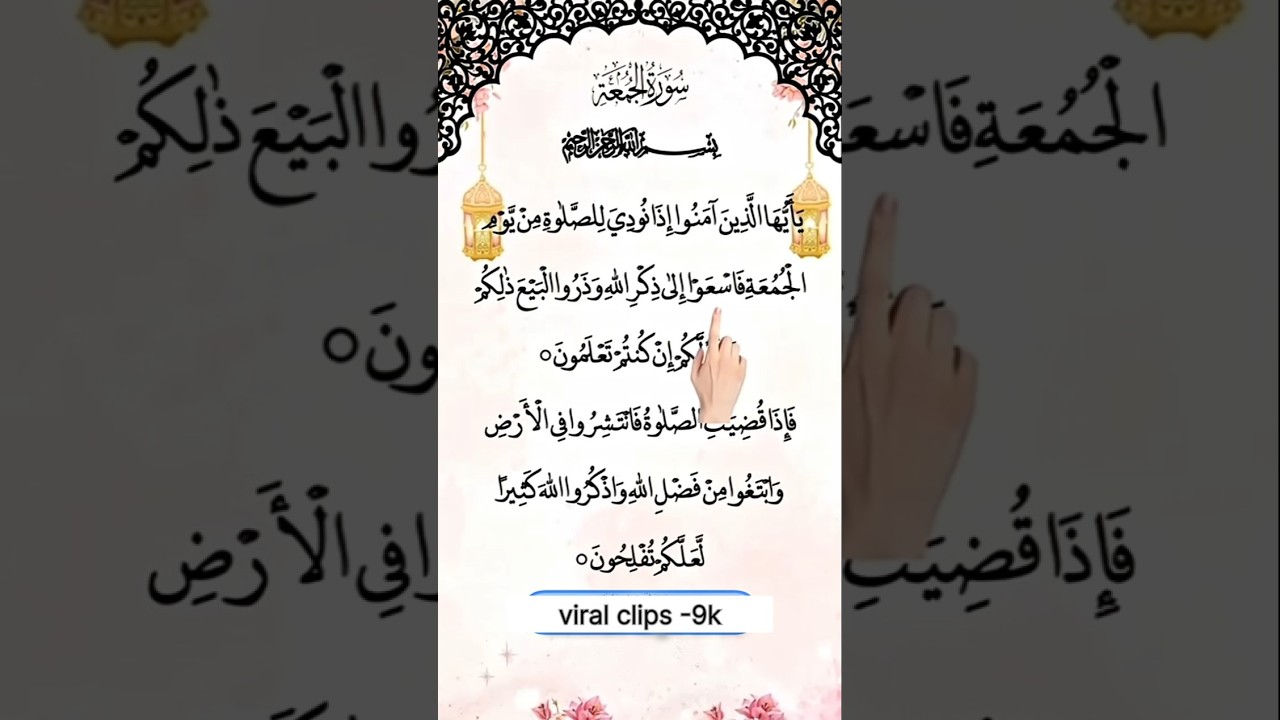 سُورَةُ الْجُمُعَة
بِسْمِ اللَّهِ الرَّحْمَنِ الرَّحِيمِ
يَأَيُّهَا الَّذِينَ آمَنُوا إِذَا نُودِيَ لِلصَّلٰوةِ مِنْ يَّوْمِ
الْجُمُعَةِ فَاسْعَوْا إِلٰى ذِكْرِ اللهِ وَذَرُوا الْبَيْعَ ذٰلِكُمْ
لَّكُمْ إِنْ كُنتُمْ تَعْلَمُونَ ○
فَإِذَا قُضِيَتِ الصَّلٰوةُ فَانْتَشِرُوا فِي الْأَرْضِ
وَابْتَغُوا مِنْ فَضْلِ اللهِ وَاذْكُرُوا اللهَ كَثِيرًا
لَّعَلَّكُمْ تُفْلِحُونَ ○
viral clips -9k